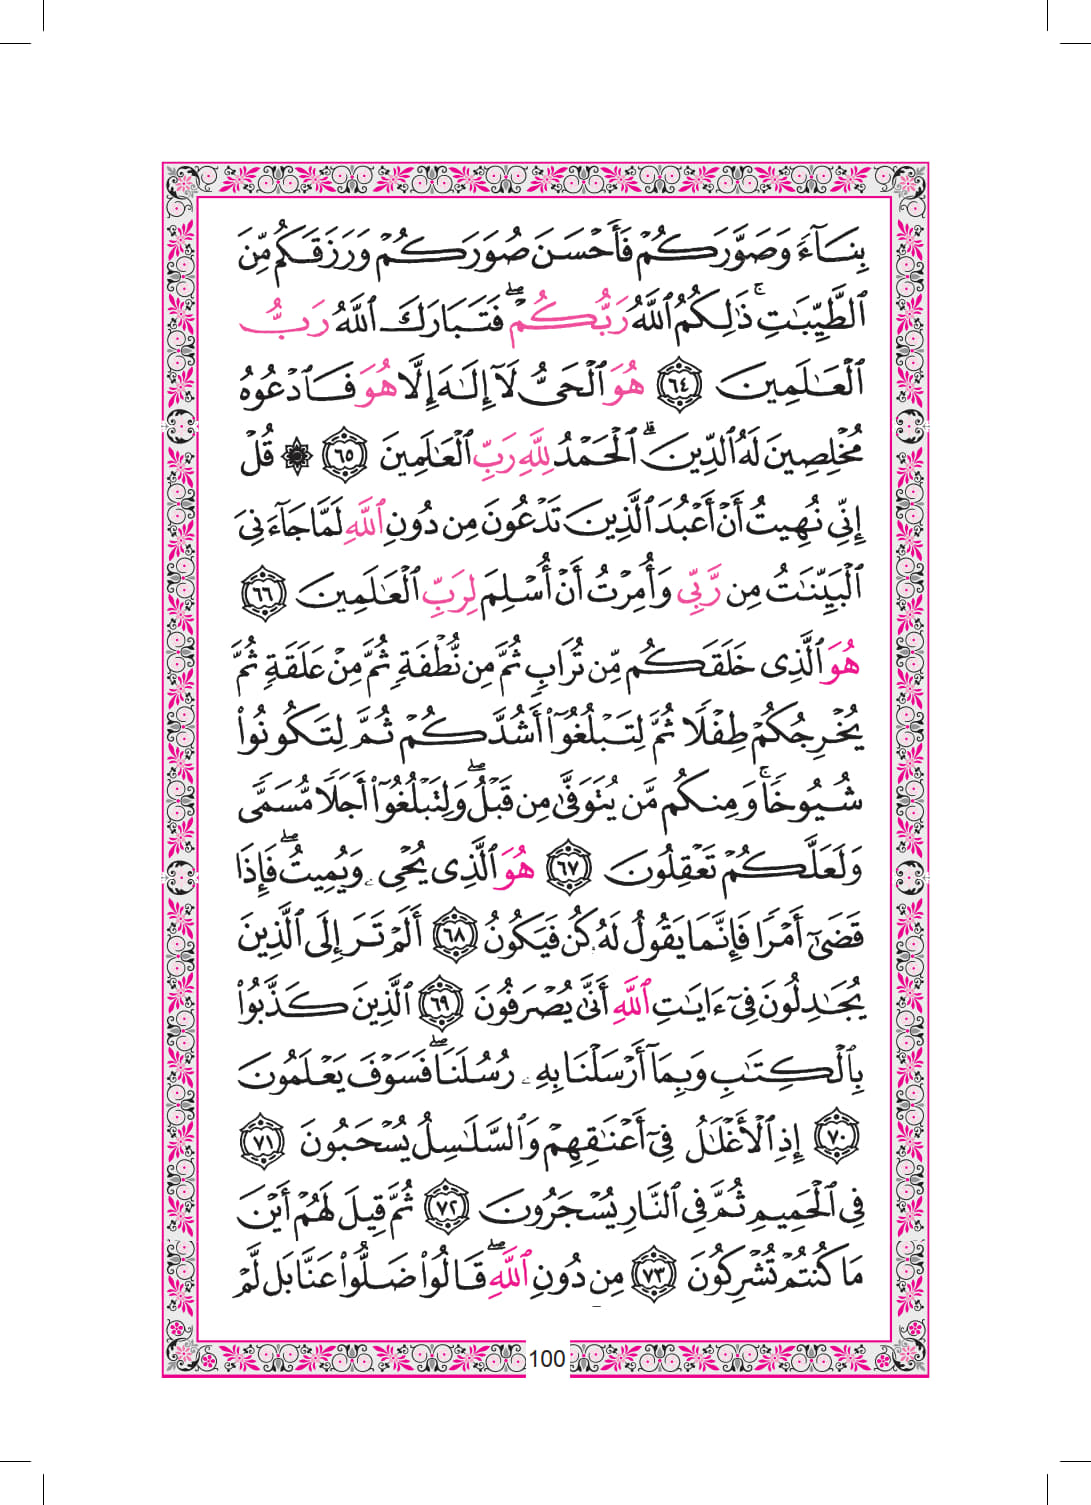 بِنَآءً وَصَوَّرَكُمْ فَأَحْسَنَ صُوَرَكُمْ وَرَزَقَكُم مِّنَ
ٱلطَّيِّبَٰتِ ۚ ذَٰلِكُمُ ٱللَّهُ رَبُّكُمْ ۖ فَتَبَارَكَ ٱللَّهُ رَبُّ
ٱلْعَٰلَمِينَ ٦٤ هُوَ ٱلْحَىُّ لَآ إِلَٰهَ إِلَّا هُوَ فَٱدْعُوهُ
مُخْلِصِينَ لَهُ ٱلدِّينَ ۗ ٱلْحَمْدُ لِلَّهِ رَبِّ ٱلْعَٰلَمِينَ ٦٥ ۞ قُلْ
إِنِّى نُهِيتُ أَنْ أَعْبُدَ ٱلَّذِينَ تَدْعُونَ مِن دُونِ ٱللَّهِ لَمَّا جَآءَنِىَ
ٱلْبَيِّنَٰتُ مِن رَّبِّى وَأُمِرْتُ أَنْ أُسْلِمَ لِرَبِّ ٱلْعَٰلَمِينَ ٦٦
هُوَ ٱلَّذِى خَلَقَكُم مِّن تُرَابٍ ثُمَّ مِن نُّطْفَةٍ ثُمَّ مِنْ عَلَقَةٍ ثُمَّ
يُخْرِجُكُمْ طِفْلًا ثُمَّ لِتَبْلُغُوٓا۟ أَشُدَّكُمْ ثُمَّ لِتَكُونُوا۟
شُيُوخًا ۚ وَمِنكُم مَّن يُتَوَفَّىٰ مِن قَبْلُ ۖ وَلِتَبْلُغُوٓا۟ أَجَلًا مُّسَمًّى
وَلَعَلَّكُمْ تَعْقِلُونَ ٦٧ هُوَ ٱلَّذِى يُحْىِۦ وَيُمِيتُ ۖ فَإِذَا
قَضَىٰٓ أَمْرًا فَإِنَّمَا يَقُولُ لَهُۥ كُن فَيَكُونُ ٦٨ أَلَمْ تَرَ إِلَى ٱلَّذِينَ
يُجَٰدِلُونَ فِىٓ ءَايَٰتِ ٱللَّهِ أَنَّىٰ يُصْرَفُونَ ٦٩ ٱلَّذِينَ كَذَّبُوا۟
بِٱلْكِتَٰبِ وَبِمَآ أَرْسَلْنَا بِهِۦ رُسُلَنَا ۖ فَسَوْفَ يَعْلَمُونَ
٧٠ إِذِ ٱلْأَغْلَٰلُ فِىٓ أَعْنَٰقِهِمْ وَٱلسَّلَٰسِلُ يُسْحَبُونَ ٧١
فِى ٱلْحَمِيمِ ثُمَّ فِى ٱلنَّارِ يُسْجَرُونَ ٧٢ ثُمَّ قِيلَ لَهُمْ أَيْنَ
مَا كُنتُمْ تُشْرِكُونَ ٧٣ مِن دُونِ ٱللَّهِ ۖ قَالُوا۟ ضَلُّوا۟ عَنَّا بَل لَّمْ
100